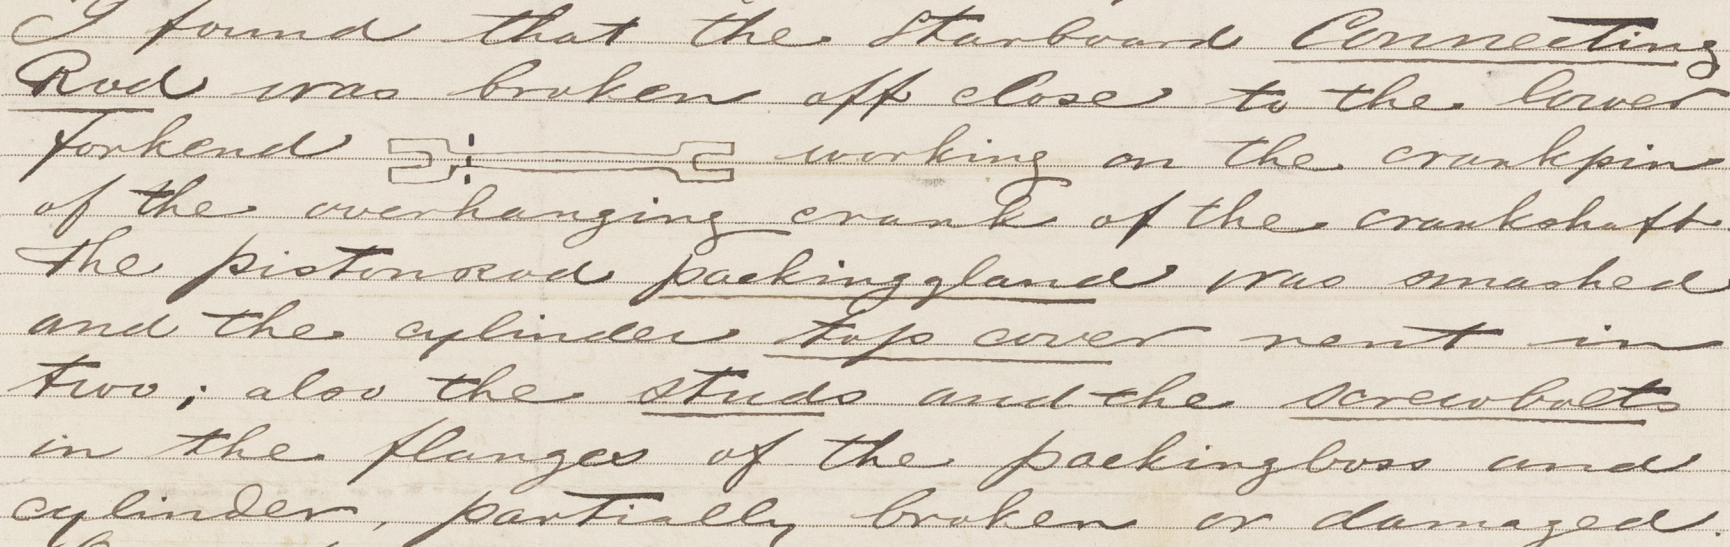 I found that the Starboard Connecting
Rod was broken off close to the lower
forkend working on the crankpin
of the overhanging crank of the crankshaft.
The pistonrod packinggland was smashed
and the cylinder top cover rent in
two; also the studs and the screwbolts
in the flanges of the packingboss and
cylinder, partially broken or damaged.